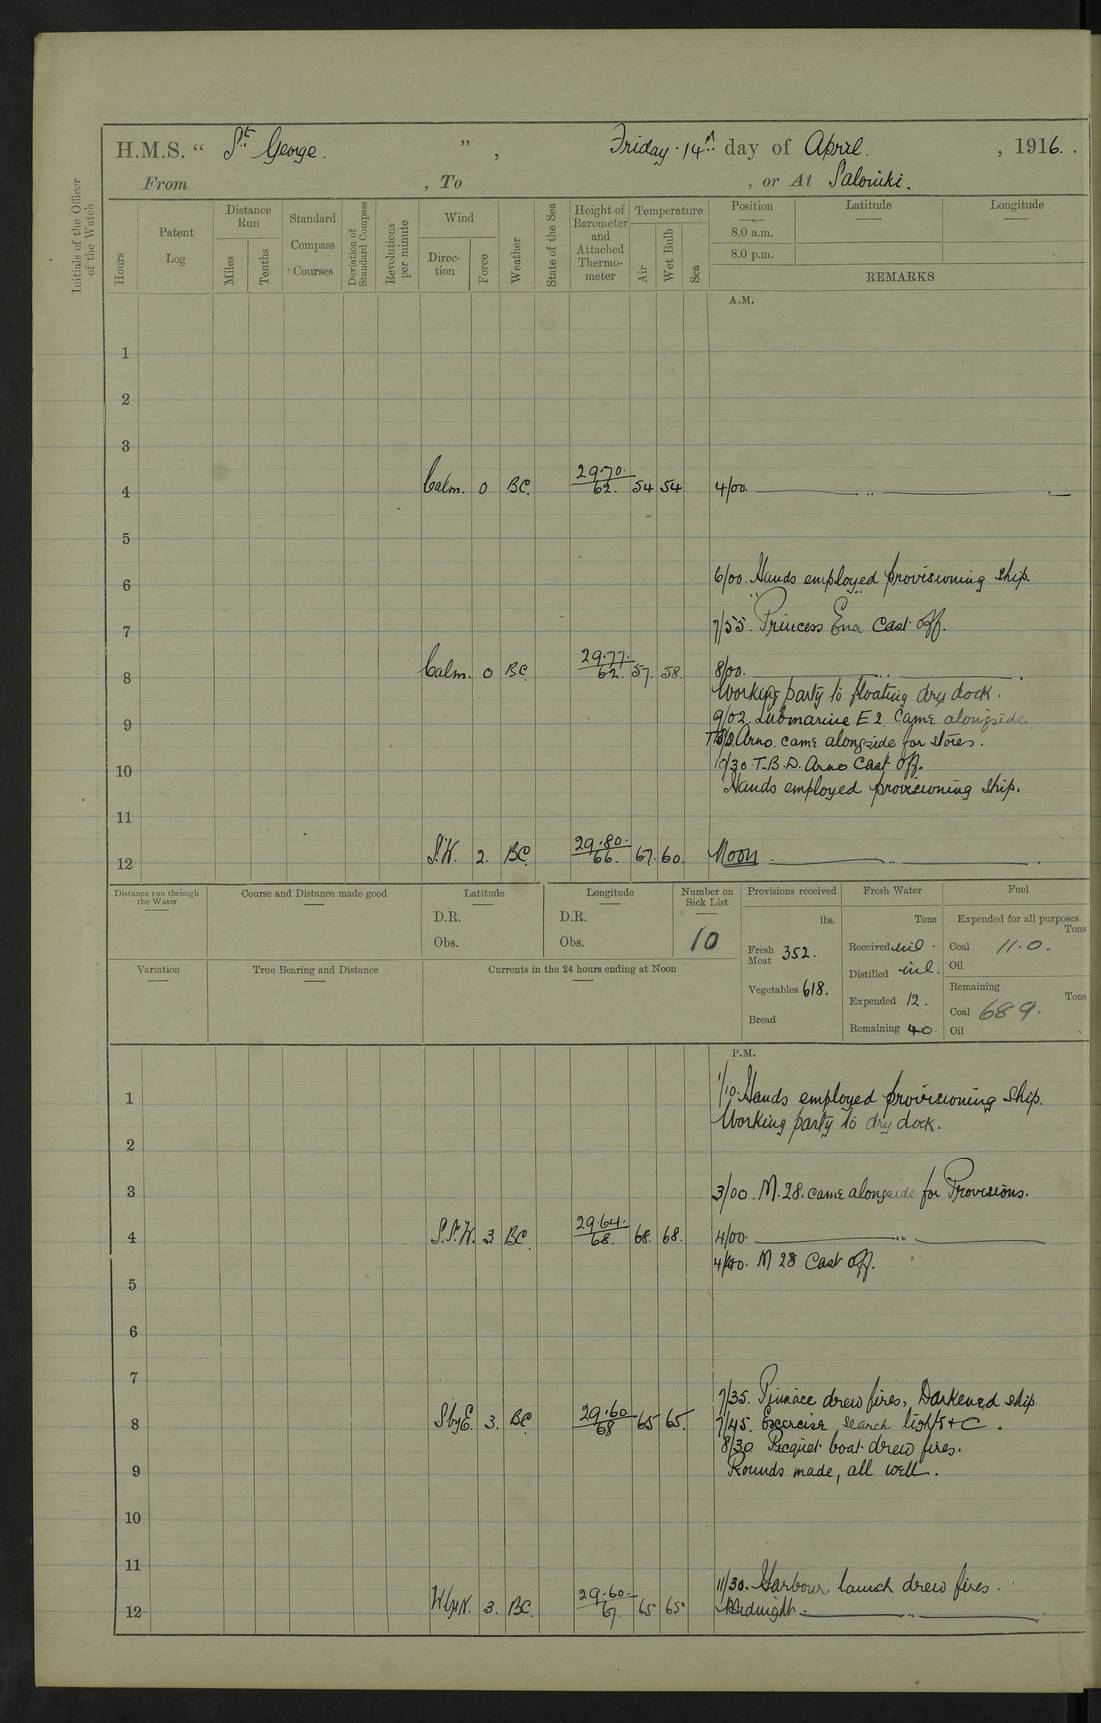 H.M.S. “ St. George. ” , Friday 14th day of April. , 1916.
From , To , or At Salonicki.
Initials of the Officer of the Watch
Hours
Patent Log
Distance Run
Miles
Tenths
Standard Compass Courses
Deviation of Standard Compass
Revolutions per minute
Wind
Direction
Force
Weather
State of the Sea
Height of Barometer and Attached Thermometer
Temperature
Air
Wet Bulb
Sea
Position
8.0 a.m.
8.0 p.m.
Latitude
Longitude
REMARKS
A.M.
1
2
3
4 Calm. 0 BC. 29.70. 62. 54 54 4/00. ———— " ————
5
6 6/00. Hands employed provisioning ship.
7 7/55. "Princess Ena" Cast off.
8 Calm. 0 BC. 29.77. 62. 57. 58. 8/00. ———— " ————
Working party to floating dry dock.
9 9/02. Submarine E2 Came alongside.
T.B.D. Arno came alongside for stores.
10 10/30. T.B.D. Arno Cast off.
Hands employed provisioning ship.
11
12 S.W. 2. BC. 29.80. 66. 67. 60. Noon ———— " ————
Distance run through the Water
Course and Distance made good
Latitude
D.R.
Obs.
Longitude
D.R.
Obs.
Number on Sick List
10
Provisions received
lbs.
Fresh Meat 352.
Vegetables 618.
Bread
Fresh Water
Tons
Received nil.
Distilled nil.
Expended 12.
Remaining 40.
Fuel
Expended for all purposes
Tons
Coal 11.0.
Oil
Remaining
Tons
Coal 689.
Oil
Variation
True Bearing and Distance
Currents in the 24 hours ending at Noon
P.M.
1 1/10. Hands employed provisioning ship.
Working party to dry dock.
2
3 3/00. M.28. came alongside for Provisions.
4 S.S.W. 3 BC. 29.64. 68. 68. 68. 4/00. ———— " ————
M 28 Cast off.
5
6
7
7/35. Pinnace drew fires, Darkened ship
8 SbyE. 3. BC. 29.60 68 65 65. 7/45. Excercise search lights &c.
8/30 Picquet boat drew fires.
9 Rounds made, all well.
10
11
11/30. Harbour launch drew fires.
12 WbyN. 3. BC. 29.60. 67. 65 65 Midnight. ———— " ————